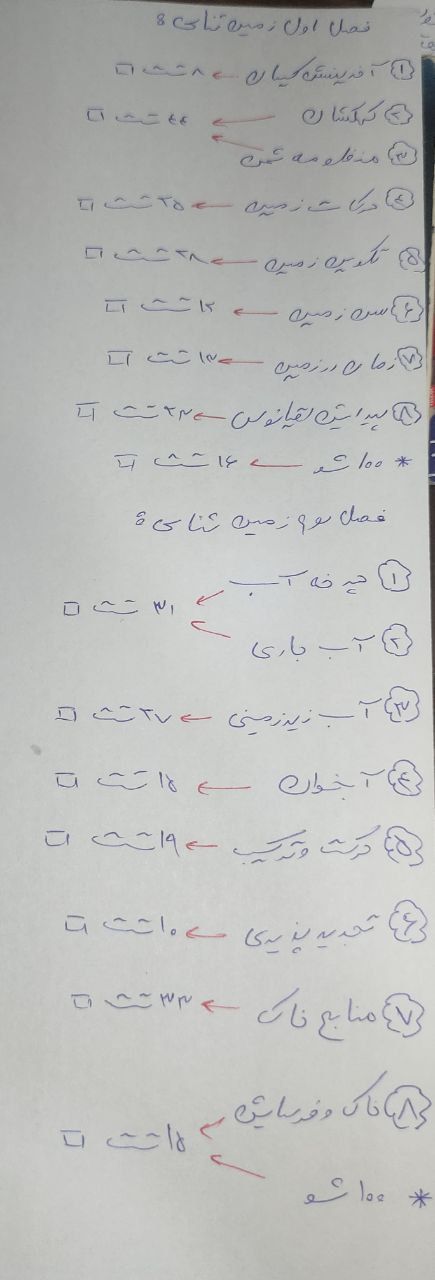 فصل اول زمین شناسی :
۱ آفرینش کیهان ← ۸ تست □
۲ کهکشان ←
۴۴ تست □
۳ منظومه شمسی ←
۴ حرکات زمین ← ۲۵ تست □
۵ تکوین زمین ← ۲۸ تست □
۶ سن زمین ← ۱۲ تست □
۷ زمان در زمین ← ۱۲ تست □
۸ پیدایش اقیانوس ← ۲۲ تست □
* ۱۰۰ شو ← ۱۶ تست □
فصل سوم زمین شناسی :
۱ چرخه آب ←
۳۱ تست □
۲ آب جاری ←
۳ آب زیرزمینی ← ۲۷ تست □
۴ آبخوان ← ۱۵ تست □
۵ حرکت و ترکیب ← ۱۹ تست □
۶ تجدید پذیری ← ۱۰ تست □
۷ منابع خاک ← ۳۲ تست □
۸ خاک و فرسایش ←
۱۵ تست □
* ۱۰۰ شو ←